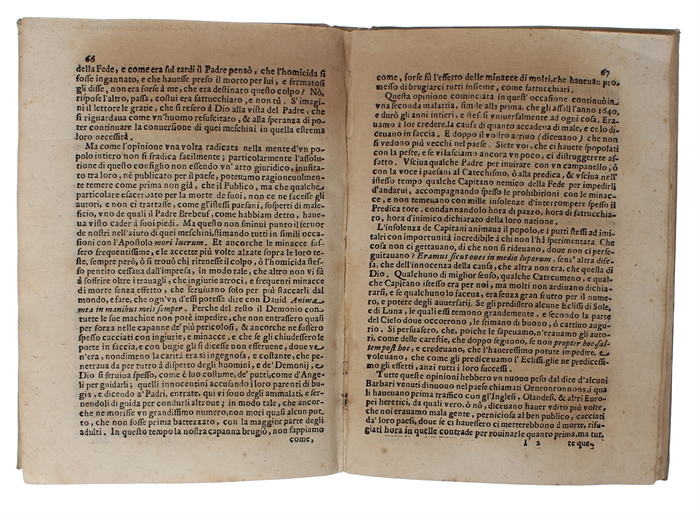 66
della Fede, e come era sul tardi il Padre pensò, che l'homicida si
fosse ingannato, e che hauesse preso il morto per lui, e fermatosi
gli disse, non era forse à me, che era destinato questo colpo? Nò,
rispose l'altro, passa, costui era fattucchiaro, e non tù. S'imagi
ni il lettore le gratie, che si resero à Dio alla vista del Padre, che
si riguardaua come vn'huomo resuscitato, & alla speranza di po-
ter continuare la conuersione di quei meschini in quella estrema
loro necessità.
Ma come l'opinione vna volta radicata nella mente d'vn po
polo intiero non si sradica facilmente; particolarmente l'assolu-
tione di questo consiglio non essendo vn'atto giuridico, inusita-
to tra loro, nè publicato per il paese, poteuano ragioneuolmen-
te temere come prima non già, che il Publico, ma che qualche
particolare esaccerbato per la morte de suoi, non ce ne facesse gli
autori, e non ci trattasse, come gl'istessi paesani, sospetti di male-
ficio, vno de quali il Padre Brebeuf, come habbiam detto, haue-
ua visto cader à suoi piedi. Ma questo non sminuì punto il feruor
de nostri nell'aiuto di quei meschini, stimando tutti in simili occa-
sioni con l'Apostolo mori lucrum. Et ancorche le minacce fus-
sero frequentissime, e le accette più volte alzate sopra le loro te-
ste, sempre però, ò si trouò chi ritenesse il colpo, ò l'homicida stes-
so pentito cessaua dall'impresa, in modo tale, che altro non vi fù
à soffrire oltre i trauagli, che ingiurie atroci, e frequenti minacce
di morte senza effetto, che seruiuano solo per più staccarli dal
mondo, e fare, che ogn'vn d'essi potesse dire con Dauid Anima
mea in manibus meis semper. Perche del resto il Demonio con
tutte le sue machine non potè impedire, che non entrassero quasi
per forza nelle capanne de' più pericolosi, & ancorche ne fussero
spesso cacciati con ingiurie, e minacce, e che se gli chiudessero le
porte in faccia, e con bugie gli si dicesse non esseruene, doue ve
n'era, nondimeno la carità era sì ingegnosa, e costante, che pe-
netraua da per tutto à dispetto degli huomini, e de' Demonij, e
Dio si seruiua spesso, come è suo costume, de' putti, come d'Ange-
li per guidarli; quelli innocentini accusando i loro parenti di bu-
gia, e dicendo a' Padri, entrate, qui vi sono degli ammalati, e ser-
uendoli di guida per condurli altroue; in modo tale, che ancor-
che ne morisse vn grandissimo numero, non morì quasi alcun put
to, che non fosse prima battezzato, con la maggior parte degli
adulti. In questo tempo la nostra capanna brugiò, non sappiamo
come,
67
come, forse fù l'effetto delle minacce di molti, che haueuan pro
messo di brugiarci tutti insieme, come fattucchiari.
Questa opinione cominciata in quest'occasione continuò in
vna seconda malattia, simile alla prima, che gli assalì l'anno 1640,
e durò gli anni intieri, e stesi vniuersalmente ad ogni cosa. Era-
uamo à lor credere, la causa di quanto accadeua di male, e colo di-
ceuano in faccia. E doppo il vostro arriuo (diceuano) che non
si vedono più vecchi nel paese. Siete voi, che ci hauete spopolati
con la peste, e vi lasciamo ancora vn poco, ci distruggerete af-
fatto. Vsciua qualche Padre per inuitare con vn campanello, ò
con la voce i paesani al Catechismo, ò alla predica, & vsciua nell'
istesso tempo qualche Capitano nemico della Fede per impedirli
d'andarui, accompagnando spesso le prohibitioni con le minac-
ce, e non temeuano con mille insolenze d'interrompere spesso il
Predicatore, condannandolo hora di pazzo, hora di fattucchia-
ro, hora d'inimico dichiarato della loro natione.
L'insolenza de Capitani animaua il popolo, e i putti stessi ad imi-
tarli con importunità incredibile à chi non l'hà sperimentata. Che
cosa non ci gettauano, di che non si rideuano, doue non ci perse-
guitauano? Eramus sicut oues in medio luporum, senz'altra dife-
sa, che dell'innocenza della causa, che altra non era, che quella di
Dio. Qualchuno di miglior senso, qualche Catecumeno, e qual-
che Capitano istesso era per noi, ma molti non ardiuano dichia-
rarsi, e se qualchuno lo faceua, era senza gran frutto per il nume-
ro, e potere degli auuersarij. Se gli predissero alcune Eclissi di Sole,
e di Luna, le quali essi temono grandemente, e secondo la parte
del Cielo doue occorrono, le stimano di buono, ò cattiuo augu-
rio. Si persuasero, che, poiche le sapeuamo, n'eramo gli auto-
ri, come delle carestie, che doppo seguirono, se non propter hoc, sal-
tem post hoc, e credeuano, che l'hauressimo potute impedire, e
voleuano, che come gli prediceuamo l'Eclissi, glie ne predicessi-
mo gli effetti, anzi tutti i loro successi.
Tutte queste opinioni hebbero vn nuouo peso dal dire d'alcuni
Barbari venuti di nuouo nel paese chiamati Oenronronnons, i qua
li haueuano prima traffico con gl'Inglesi, Olandesi, & altri Euro-
pei heretici, da quali vero, ò nò, diceuano hauer vdito più volte,
che noi erauamo mala gente, perniciosa al ben publico, cacciati
da' loro paesi, doue se ci hauessero ci metterebbono à morte, rifu-
giati hora in quelle contrade per rouinarle quanto prima, ma tut.
I 2 te que-